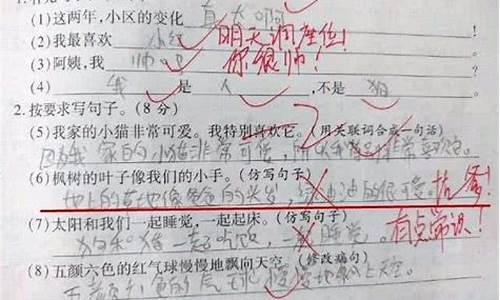 (1)这两年,小区的变化 真大啊
(2)我最喜欢 小红 明天调座位!
(3)阿姨,我 帅吗 你很帅!
(4) 我 是 人 ,不是 狗
2.按要求写句子。(8 分)
(5)我家的小猫非常可爱。我特别喜欢它。(用关联词合成一句话)
因为我家的小猫非常可爱,所以我 非常喜欢它。
(6)枫树的叶子像我们的小手。(仿写句子)
地上的草地像爸爸的头发, 油油的很可爱。
(7)太阳和我们一起睡觉,一起起床。(仿写句子)
狗和猪一起吃饭,一起睡觉。 有点常识!
(8)五颜六色的红气球慢慢地飘向天空。(修改病句)
五颜六色的气球慢慢地飘上天空。